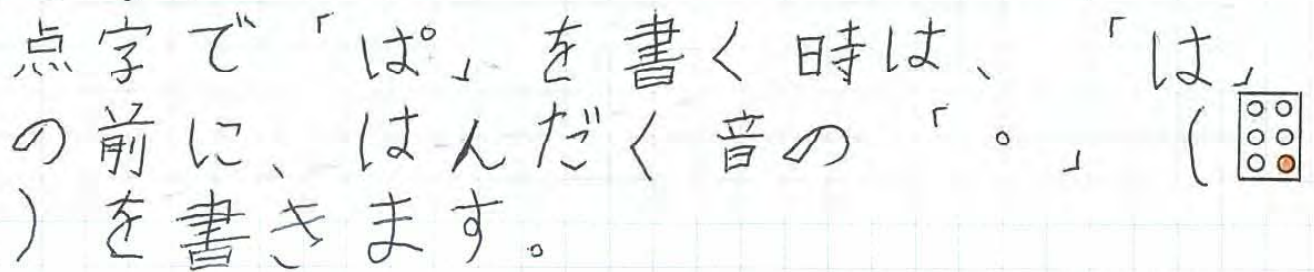 点字で「ぱ」を書く時は、「は」
の前に、はんだく音の「゜」(⠠
)を書きます。